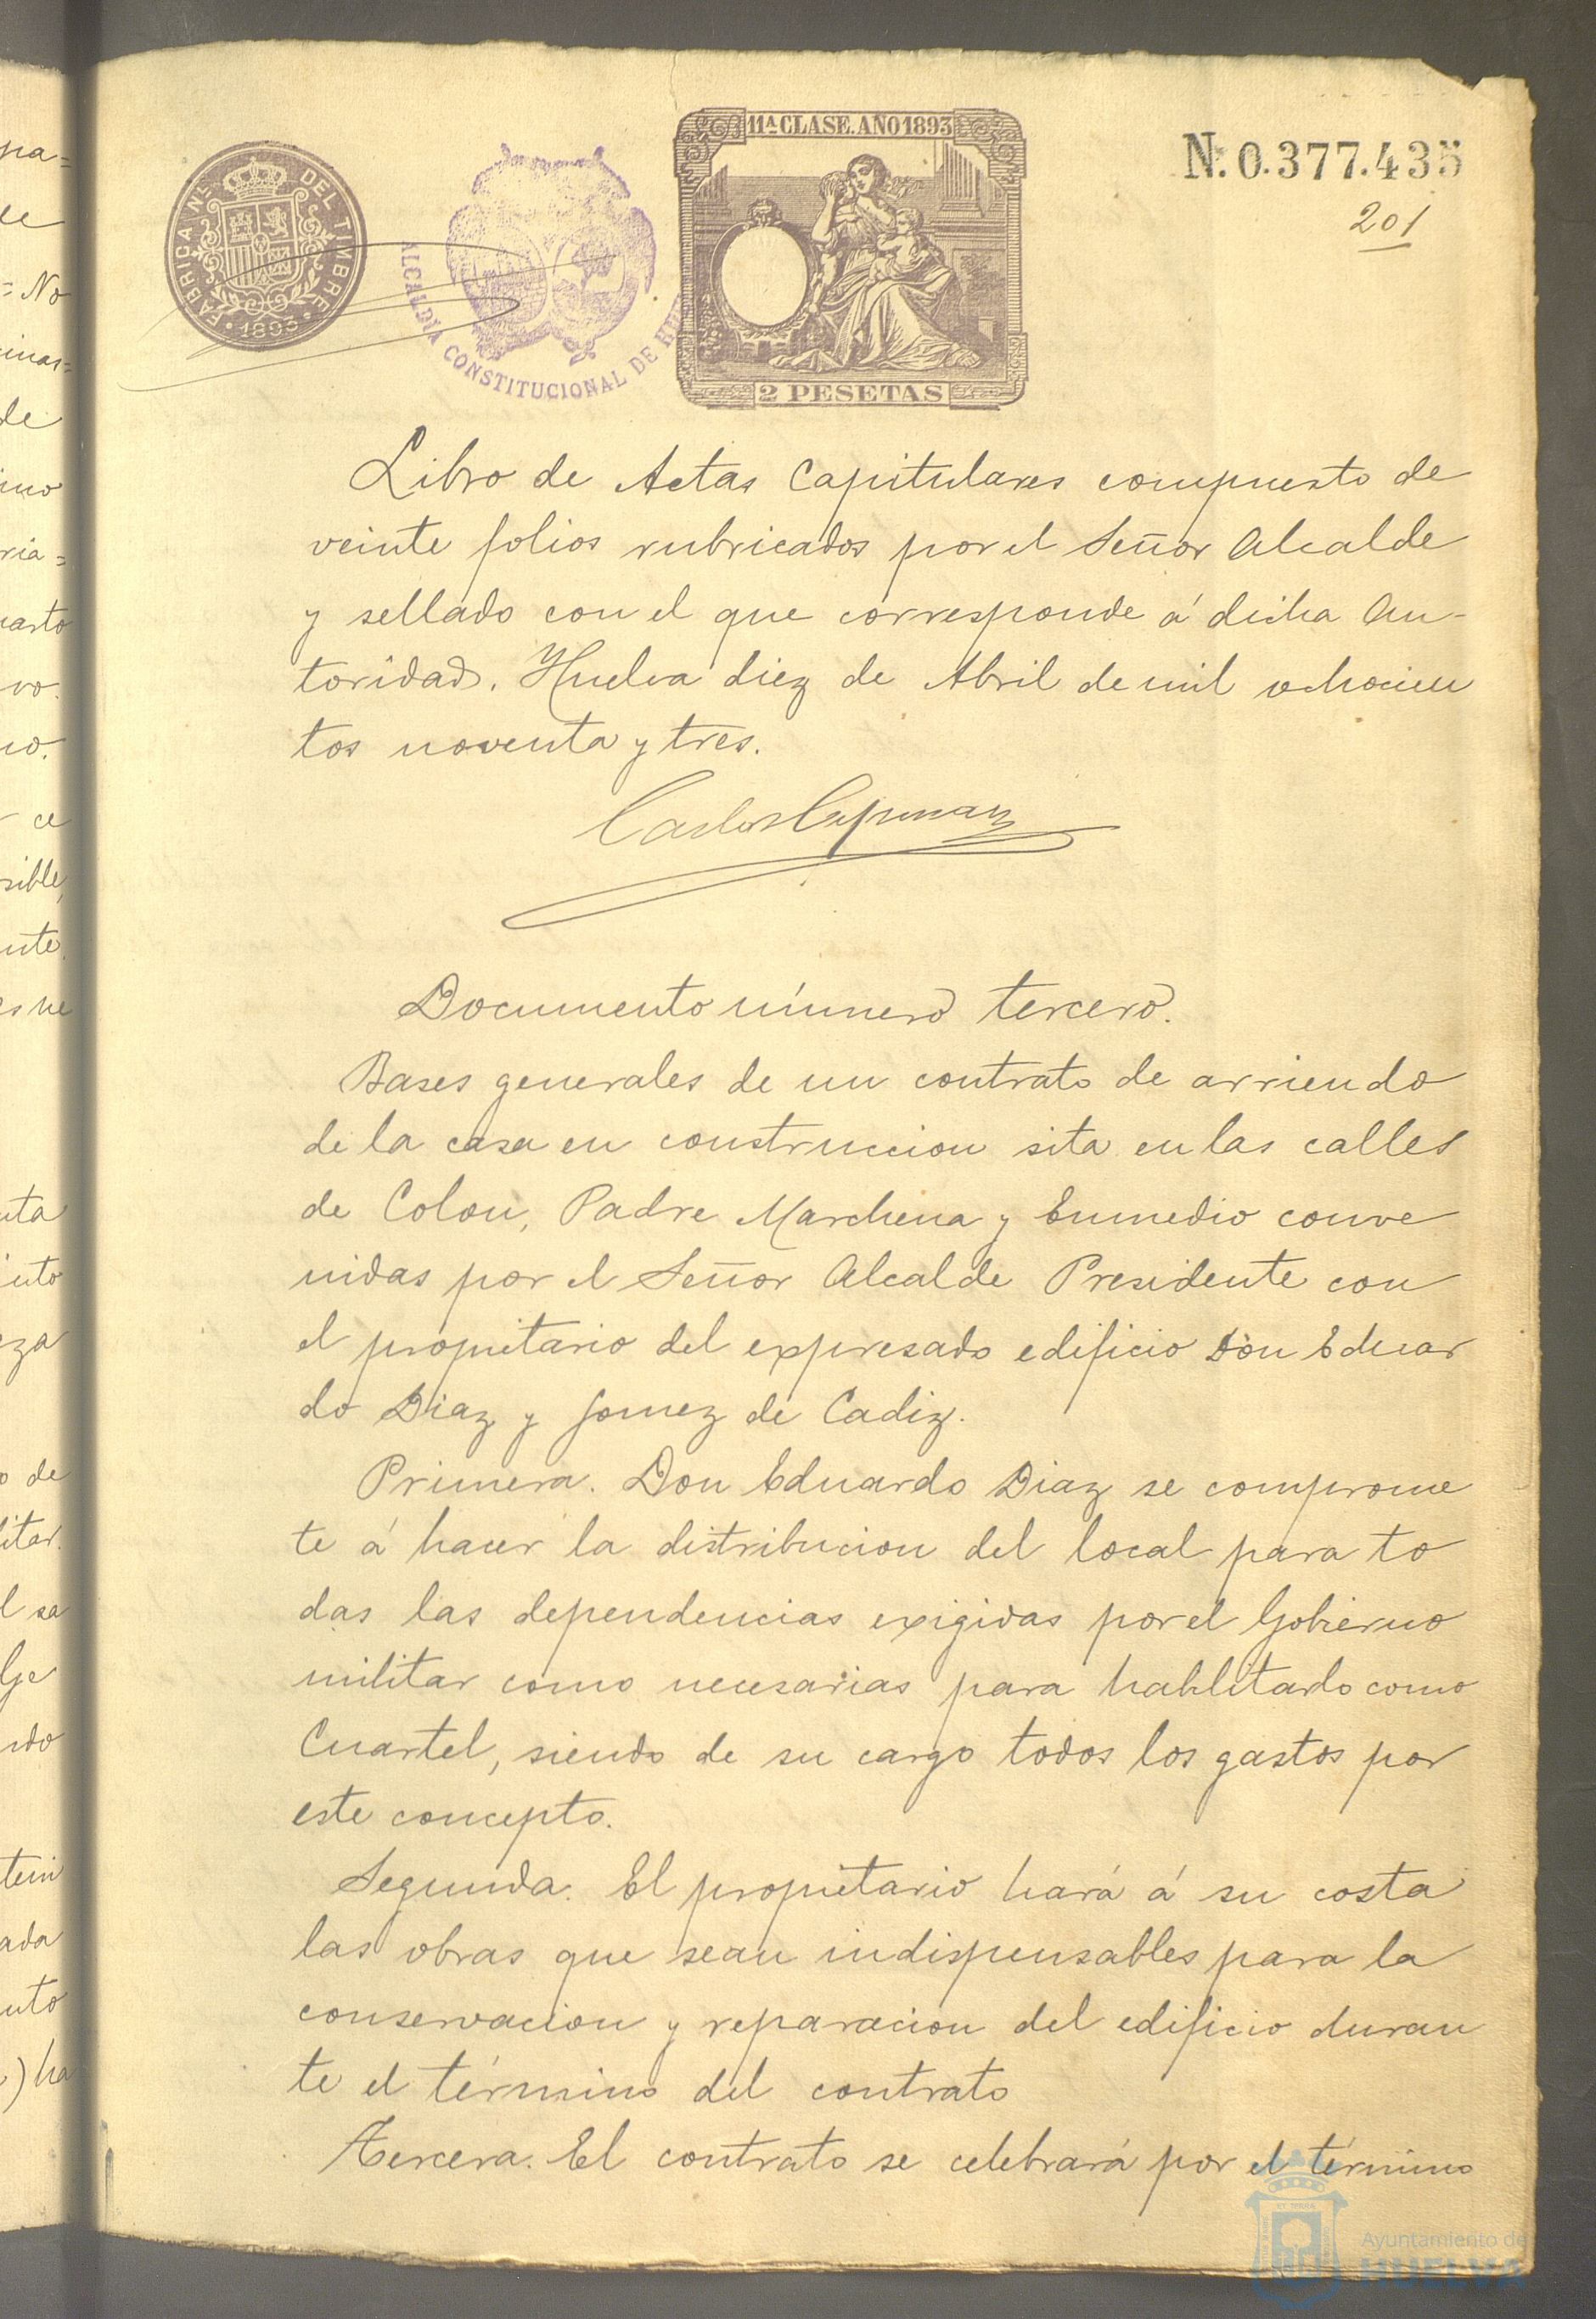 FABRICA NL. DEL TIMBRE
1893
ALCALDIA CONSTITUCIONAL DE
11ª CLASE. AÑO 1893
2 PESETAS
N. 0.377.435
201
Libro de Actas Capitulares compuesto de
veinte folios rubricados por el Señor Alcalde
y sellado con el que corresponde á dicha Au-
toridad. Huelva diez de Abril de mil ochocien
tos noventa y tres.
Carlos
Documento número tercero.
Bases generales de un contrato de arriendo
de la casa en construccion sita en las calles
de Colon, Padre Marchena y Enmedio conve
nidas por el Señor Alcalde Presidente con
el propietario del expresado edificio Don Eduar
do Diaz y Gomez de Cadiz.
Primera. Don Eduardo Diaz se comprome
te á hacer la distribucion del local para to
das las dependencias exigidas por el Gobierno
militar como necesarias para hablitarlo como
Cuartel, siendo de su cargo todos los gastos por
este concepto.
Segunda. El propietario hará á su costa
las obras que sean indispensables para la
conservacion y reparacion del edificio duran
te el término del contrato
Tercera. El contrato se celebrará por el término
Ayuntamiento de
HUELVA